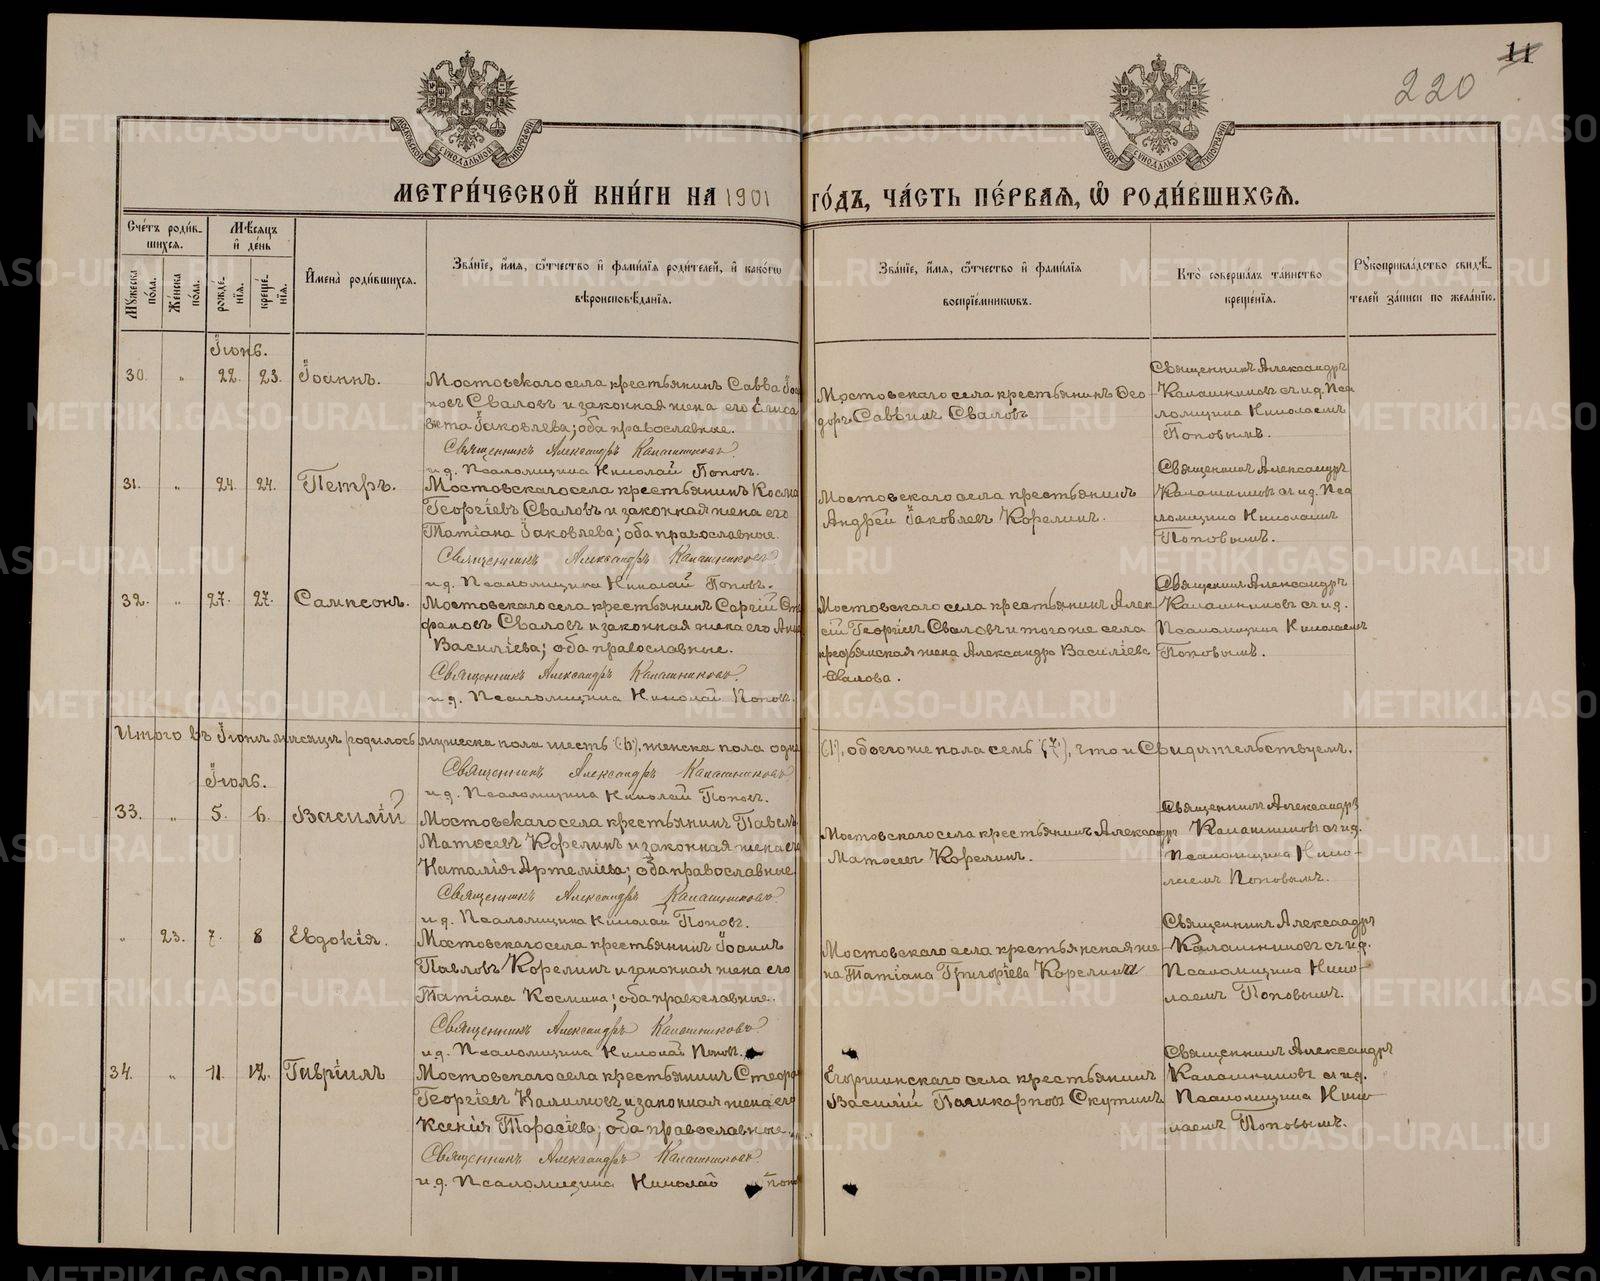 11
220
МОСКОВСКОЙ СѴНОДАЛЬНОЙ ТИПОГРАФІИ
МОСКОВСКОЙ СѴНОДАЛЬНОЙ ТИПОГРАФІИ
МЕТРИ́ЧЕСКОЙ КНИ́ГИ НА 1901 ГО́ДЪ, ЧА́СТЬ ПЕ́РВАЯ, Ѿ РОДИ́ВШИХСЯ.
Сче́тъ роди́вшихся.
Мѣ́сяцъ и де́нь
Му́жеска по́ла.
Же́нска по́ла.
рожде́нія.
креще́нія.
Имена̀ роди́вшихся.
Зва́ніе, и́мя, о́тчество и фами́лія роди́телей, и како́го вѣроисповѣ́данія.
Зва́ніе, и́мя, о́тчество и фами́лія воспріе́мниковъ.
Кто̀ соверша́лъ та́инство креще́нія.
Рукоприкла́дство свидѣ́телей за́писи по жела́нію.
Іюнь.
30. „ 22. 23. Іоаннъ.
Мостовскаго села крестьянинъ Савва
новъ Сваловъ и законная жена его Елиса
вета Іаковлева; оба православные.
Священникъ Александръ Калашниковъ
и.д. Псаломщика Николай Поповъ.
Мостовскаго села крестьянинъ Ѳео
доръ Саввинъ Сваловъ
Священникъ Александръ
Калашниковъ съ и.д. Пса
ломщика Николаемъ
Поповымъ.
31. „ 24. 24. Петръ.
Мостовскаго села крестьянинъ Косма
Георгіевъ Сваловъ и законная жена его
Татіана Іаковлева; оба православные.
Священникъ Александръ Калашниковъ
и.д. Псаломщика Николай Поповъ.
Мостовскаго села крестьянинъ
Андрей Іаковлевъ Корелинъ.
Священникъ Александръ
Калашниковъ съ и.д. Пса
ломщика Николаемъ
Поповымъ.
32. „ 27. 27. Сампсонъ.
Мостовскаго села крестьянинъ Сергій Сте
фановъ Сваловъ и законная жена его
Василіева; оба православные.
Священникъ Александръ Калашниковъ
и.д. Псаломщика Николай Поповъ.
Мостовскаго села крестьянинъ Алек
сій Георгіевъ Сваловъ и того же села
крестьянская жена Александра Василіева
Свалова.
Священникъ Александръ
Калашниковъ съ и.д.
Псаломщика Николаемъ
Поповымъ.
Итого въ Іюнѣ мѣсяцѣ родилось мужеска пола шесть (6), женска пола одна (1), обоего же пола семь (7), что и Свидѣтельствуемъ.
Священникъ Александръ Калашниковъ
и.д. Псаломщика Николай Поповъ.
Іюль.
33. „ 5. 6. Василій
Мостовскаго села крестьянинъ Павелъ
Матѳеевъ Корелинъ и законная жена его
Наталія Артеміева; оба православные
Священникъ Александръ Калашниковъ
и.д. Псаломщика Николай Поповъ.
Мостовскаго села крестьянинъ Александръ
Матѳеевъ Корелинъ.
Священникъ Александръ
Калашниковъ съ и.д.
Псаломщика Нико-
лаемъ Поповымъ.
„ 23. 7. 8 Евдокія.
Мостовскаго села крестьянинъ Іоаннъ
Павловъ Корелинъ и законная жена его
Татіана Космина; оба православные.
Священникъ Александръ Калашниковъ
и.д. Псаломщика Николай Поповъ.
Мостовскаго села крестьянская же
на Татіана Григоріева Корелина
Священникъ Александръ
Калашниковъ съ и.д.
Псаломщика Нико-
лаемъ Поповымъ.
34. „ 11. 12. Гавріилъ
Мостовскаго села крестьянинъ
Георгіевъ Калининъ и законная жена его
Ксенія Тарасіева; оба православные.
Священникъ Александръ Калашниковъ
и.д. Псаломщика Николай Поповъ
Егоршинскаго села крестьянинъ
Василій Поликарповъ Скутинъ
Священникъ Александръ
Калашниковъ съ и.д.
Псаломщика Нико-
лаемъ Поповымъ.
METRIKI.GASO-URAL.RU